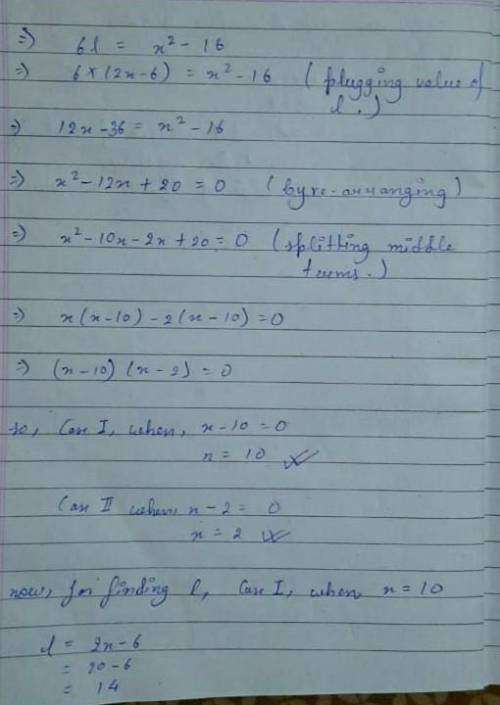 => 6l = x² - 16
=> 6 × (2x-6) = x² - 16 (plugging value of
l.)
=> 12x - 36 = x² - 16
=> x² - 12x + 20 = 0 (by re-arranging)
=> x² - 10x - 2x + 20 = 0 (splitting middle
terms.)
=> x(x-10) - 2(x-10) = 0
=> (x-10) (x-2) = 0
so, Case I, when, x-10 = 0
x = 10
Case II when, x-2 = 0
x = 2
now, for finding l, Case I, when x = 10
l = 2x-6
= 20-6
= 14